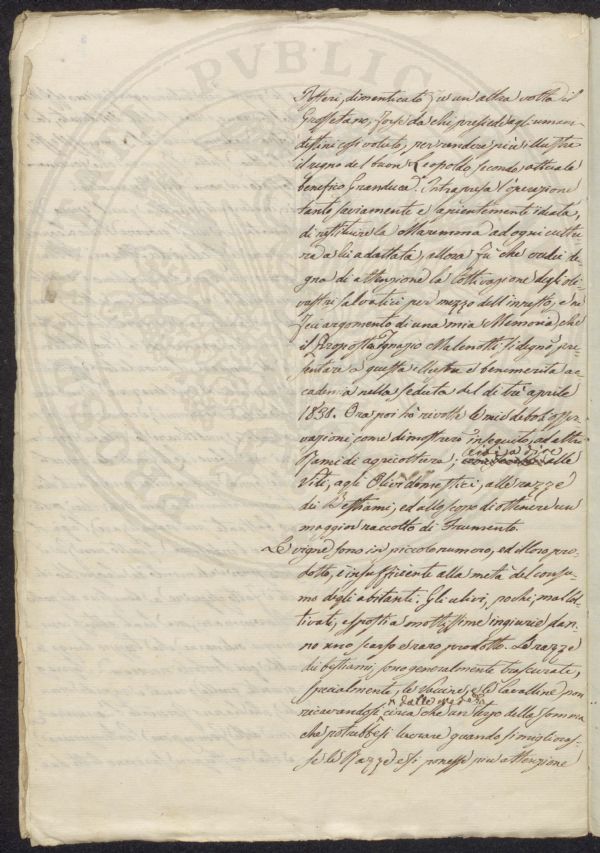 Posteri, dimenticato per un'altra volta il
Grossetano, forse da chi presiede agli umani
destini così voluto, per rendere più illustre
il regno del buon Leopoldo secondo attuale
benefico Granduca. Intrapresa l'operazione
tanto saviamente e sapientemente ideata,
di restituire la Maremma ad ogni cultu-
ra a lei adattata, allora fù che credei de-
gna di attenzione la Coltivazione degli oli-
vastri selvatici per mezzo dell'innesto, e ne
feci argomento di una mia Memoria, che
il Proposto Ignazio Malenotti si degnò pre-
sentare a questa illustre e benemerita ac-
cademia nella seduta del dì tre aprile
1831. Ora poi hò rivolte le mie deboli osser-
vazioni come dimostrerò in seguito, ad altri
Rami di agricoltura; cioè a dire alle
Viti, agli Olivi domestici, alle razze
di Bestiami, ed allo scopo di ottenere un
maggior raccolto di Frumento.
Le vigne sono in piccolo numero, ed il loro pro-
dotto, è insufficiente alla metà del consu-
mo degli abitanti. Gli ulivi, pochi, mal col-
tivati, esposti a moltissime ingiurie dan-
no uno scarso e raro prodotto. Le razze
di bestiami, sono generalmente trascurate,
specialmente, le Vaccine, e le Cavalline non
ricavandosi dalle medesime circa che un terzo della somma
che potrebbesi lucrare quando si miglioras-
se le Razze e si ponesse più attenzione